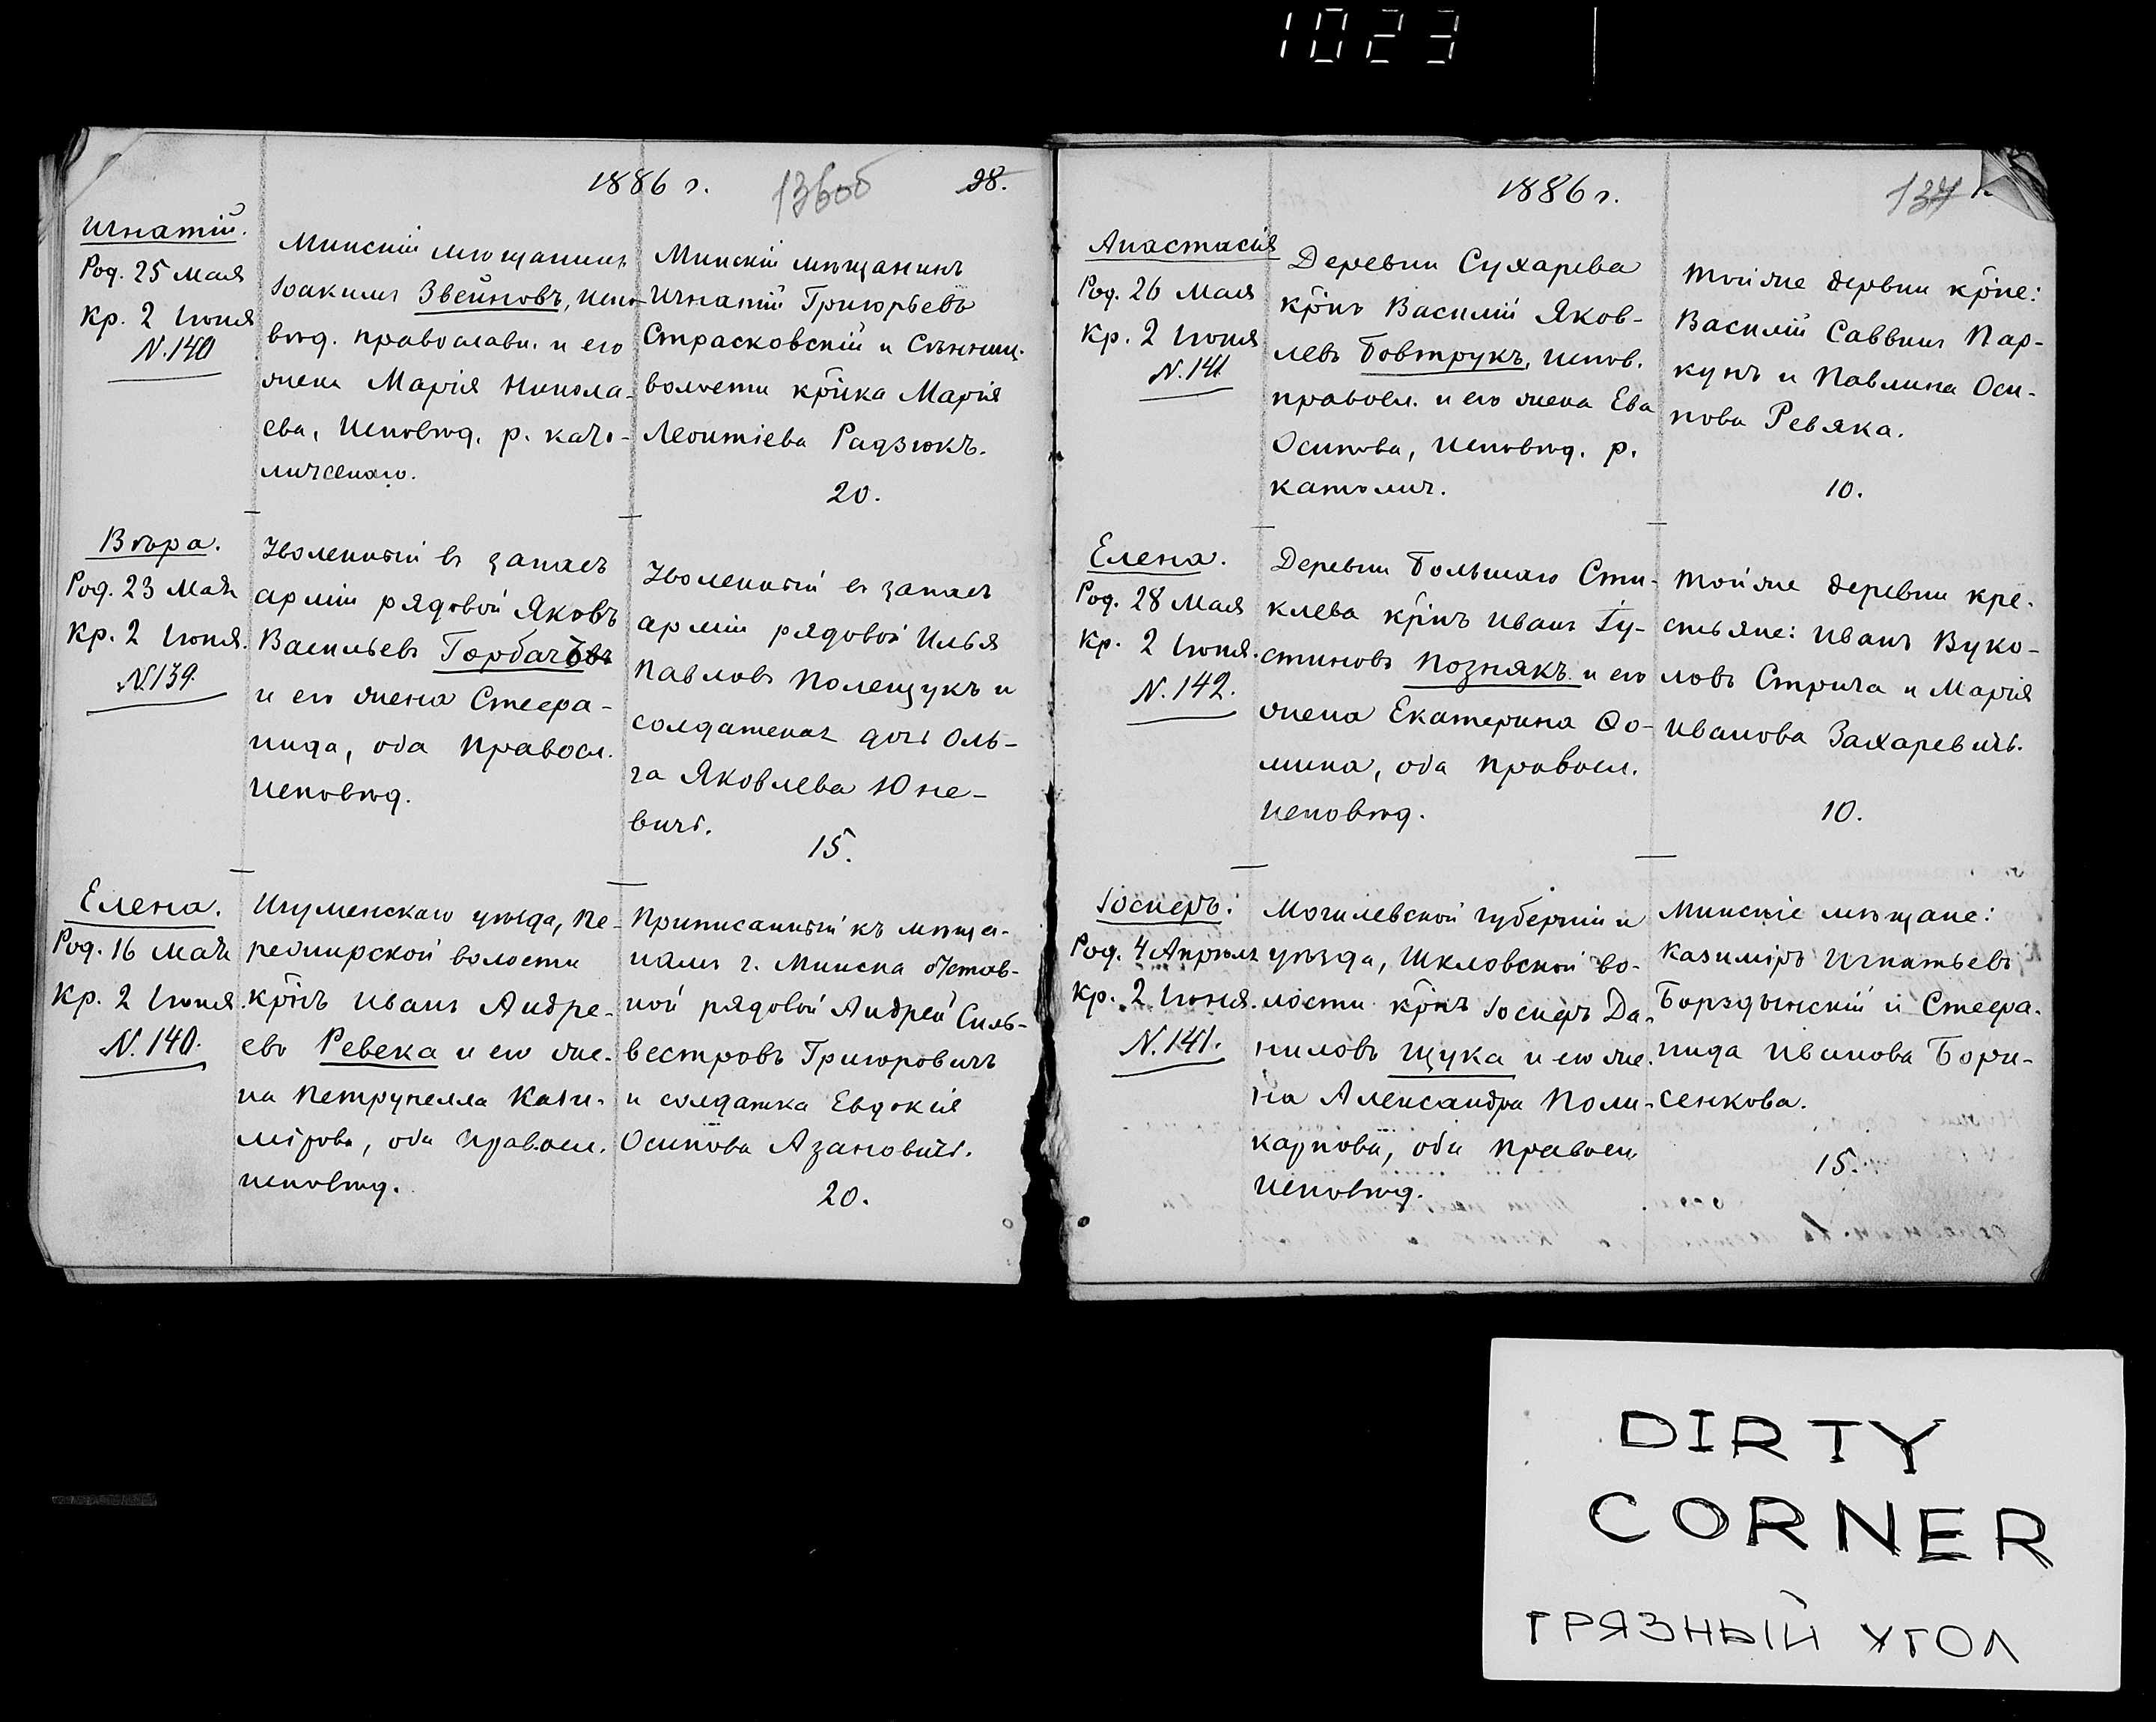 1023
1886 г. 136об 28.
Игнатій.
Род. 25 Мая
Кр. 2 Іюня
N. 140
Минскій мѣщанинъ
Іоакимъ Звейновъ, испо-
вѣд. православн. и его
жена Марія Никола-
ева, исповѣд. р. като-
лическаго.
Минскій мѣщанинъ
Игнатій Григорьевъ
Страсковскій и
волости кр̃нка Марія
Леонтіева Радзюкъ.
20.
Вѣра.
Род. 23 Мая
Кр. 2 Іюня.
N. 139.
Уволенный въ запасъ
арміи рядовой Яковъ
Васильевъ Горбачовъ
и его жена Стефа-
нида, оба правосл.
исповѣд.
Уволенный въ запасъ
арміи рядовой Илья
Павловъ Полещукъ и
солдатская дочь Оль-
га Яковлева Юне-
вичъ.
15.
Елена.
Род. 16 Мая
Кр. 2 Іюня.
N. 140.
Игуменскаго уѣзда, Пе-
режирской волости
кр̃нъ Иванъ Андре-
евъ Ревека и его же-
на Петрунелла Кази-
мірова, оба правосл.
исповѣд.
Приписанный къ мѣща-
намъ г. Минска отстав-
ной рядовой Андрей Силь-
вестровъ Григоровичъ
и солдатка Евдокія
Осипова Азановичъ.
20.
1886 г. 137
Анастасія
Род. 26 Мая
Кр. 2 Іюня
N. 141
Деревни Сухарева
кр̃нъ Василій Яков-
левъ Бовтрукъ, испов.
правосл. и его жена Ева
Осипова, исповѣд. р.
католич.
Той же деревни кр̃не:
Василій Саввинъ Пар-
кунъ и Павлина Оси-
пова Ревяка.
10.
Елена.
Род. 28 Мая
Кр. 2 Іюня.
N. 142.
Деревни Большаго Сти-
клева кр̃нъ Иванъ Іу-
стиновъ Познякъ и его
жена Екатерина Ѳо-
мина, оба правосл.
исповѣд.
Той же деревни кре-
стьяне: Иванъ Вуко-
ловъ Стрига и Марія
Иванова Захаревичъ.
10.
Іосифъ.
Род. 4 Апрѣля
Кр. 2 Іюня.
N. 141.
Могилевской губерніи и
уѣзда, Шкловской во-
лости кр̃нъ Іосифъ Да-
ниловъ Щука и его же-
на Александра Поли-
карпова, оба правосл.
исповѣд.
Минскіе мѣщане:
Казиміръ Игнатьевъ
Борздынскій и Стефа-
нида Иванова Бори-
сенкова.
15.
DIRTY
CORNER
ГРЯЗНЫЙ УГОЛ